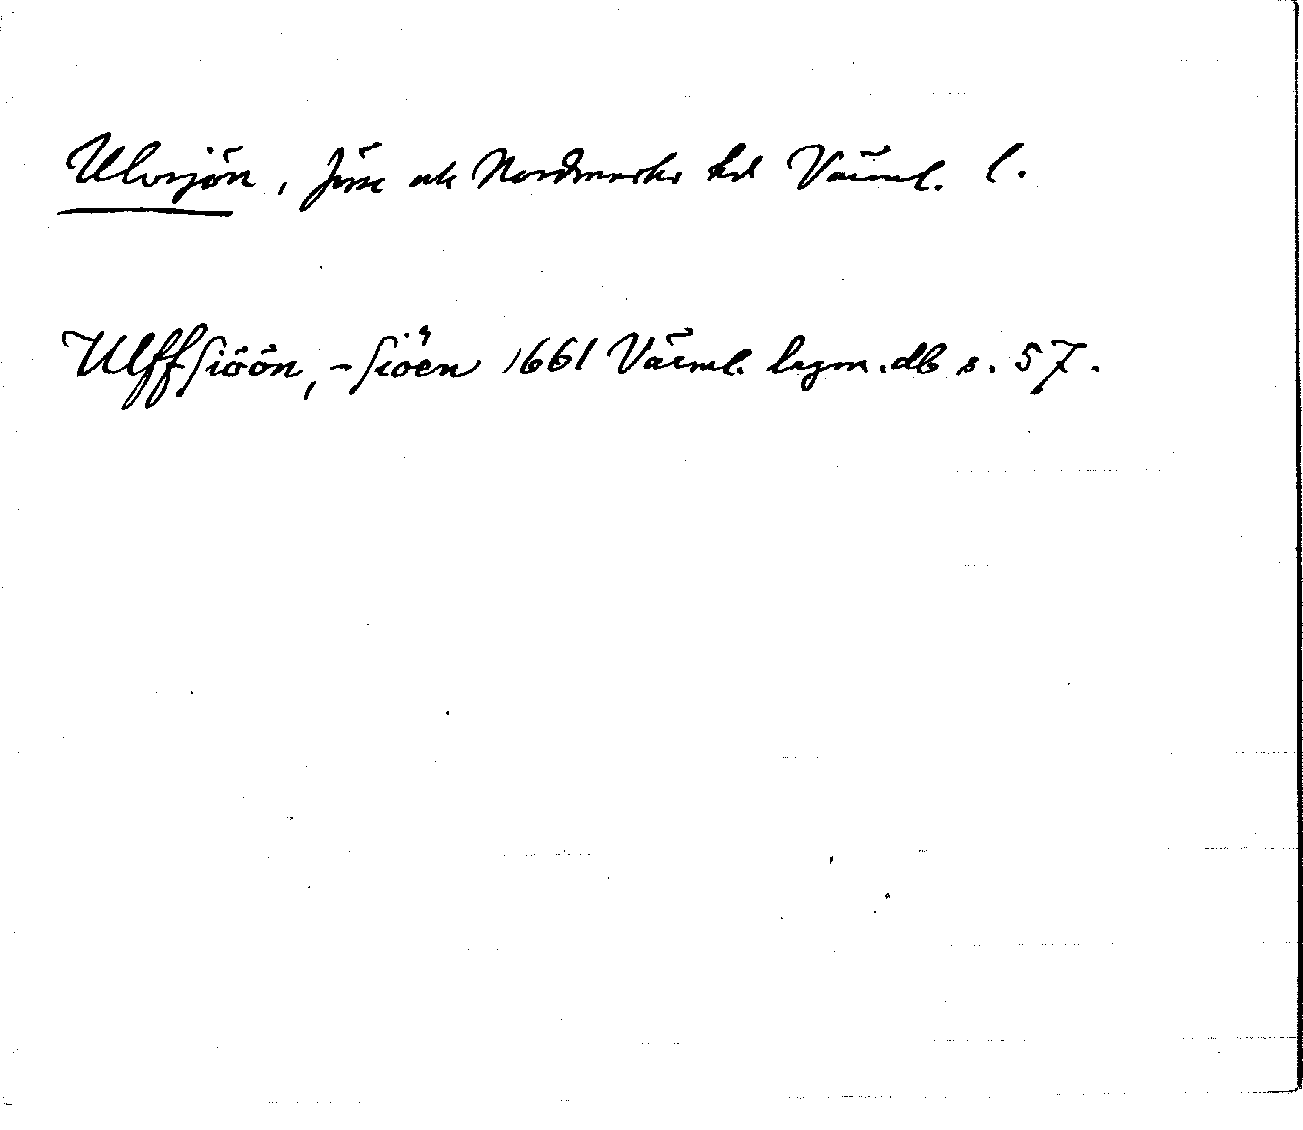 Ulvsjön, Järnsk sk Nordmarks hd Värml. l.
Ulffsiöön, -siöen 1661 Värml. lagm.db s. 57.